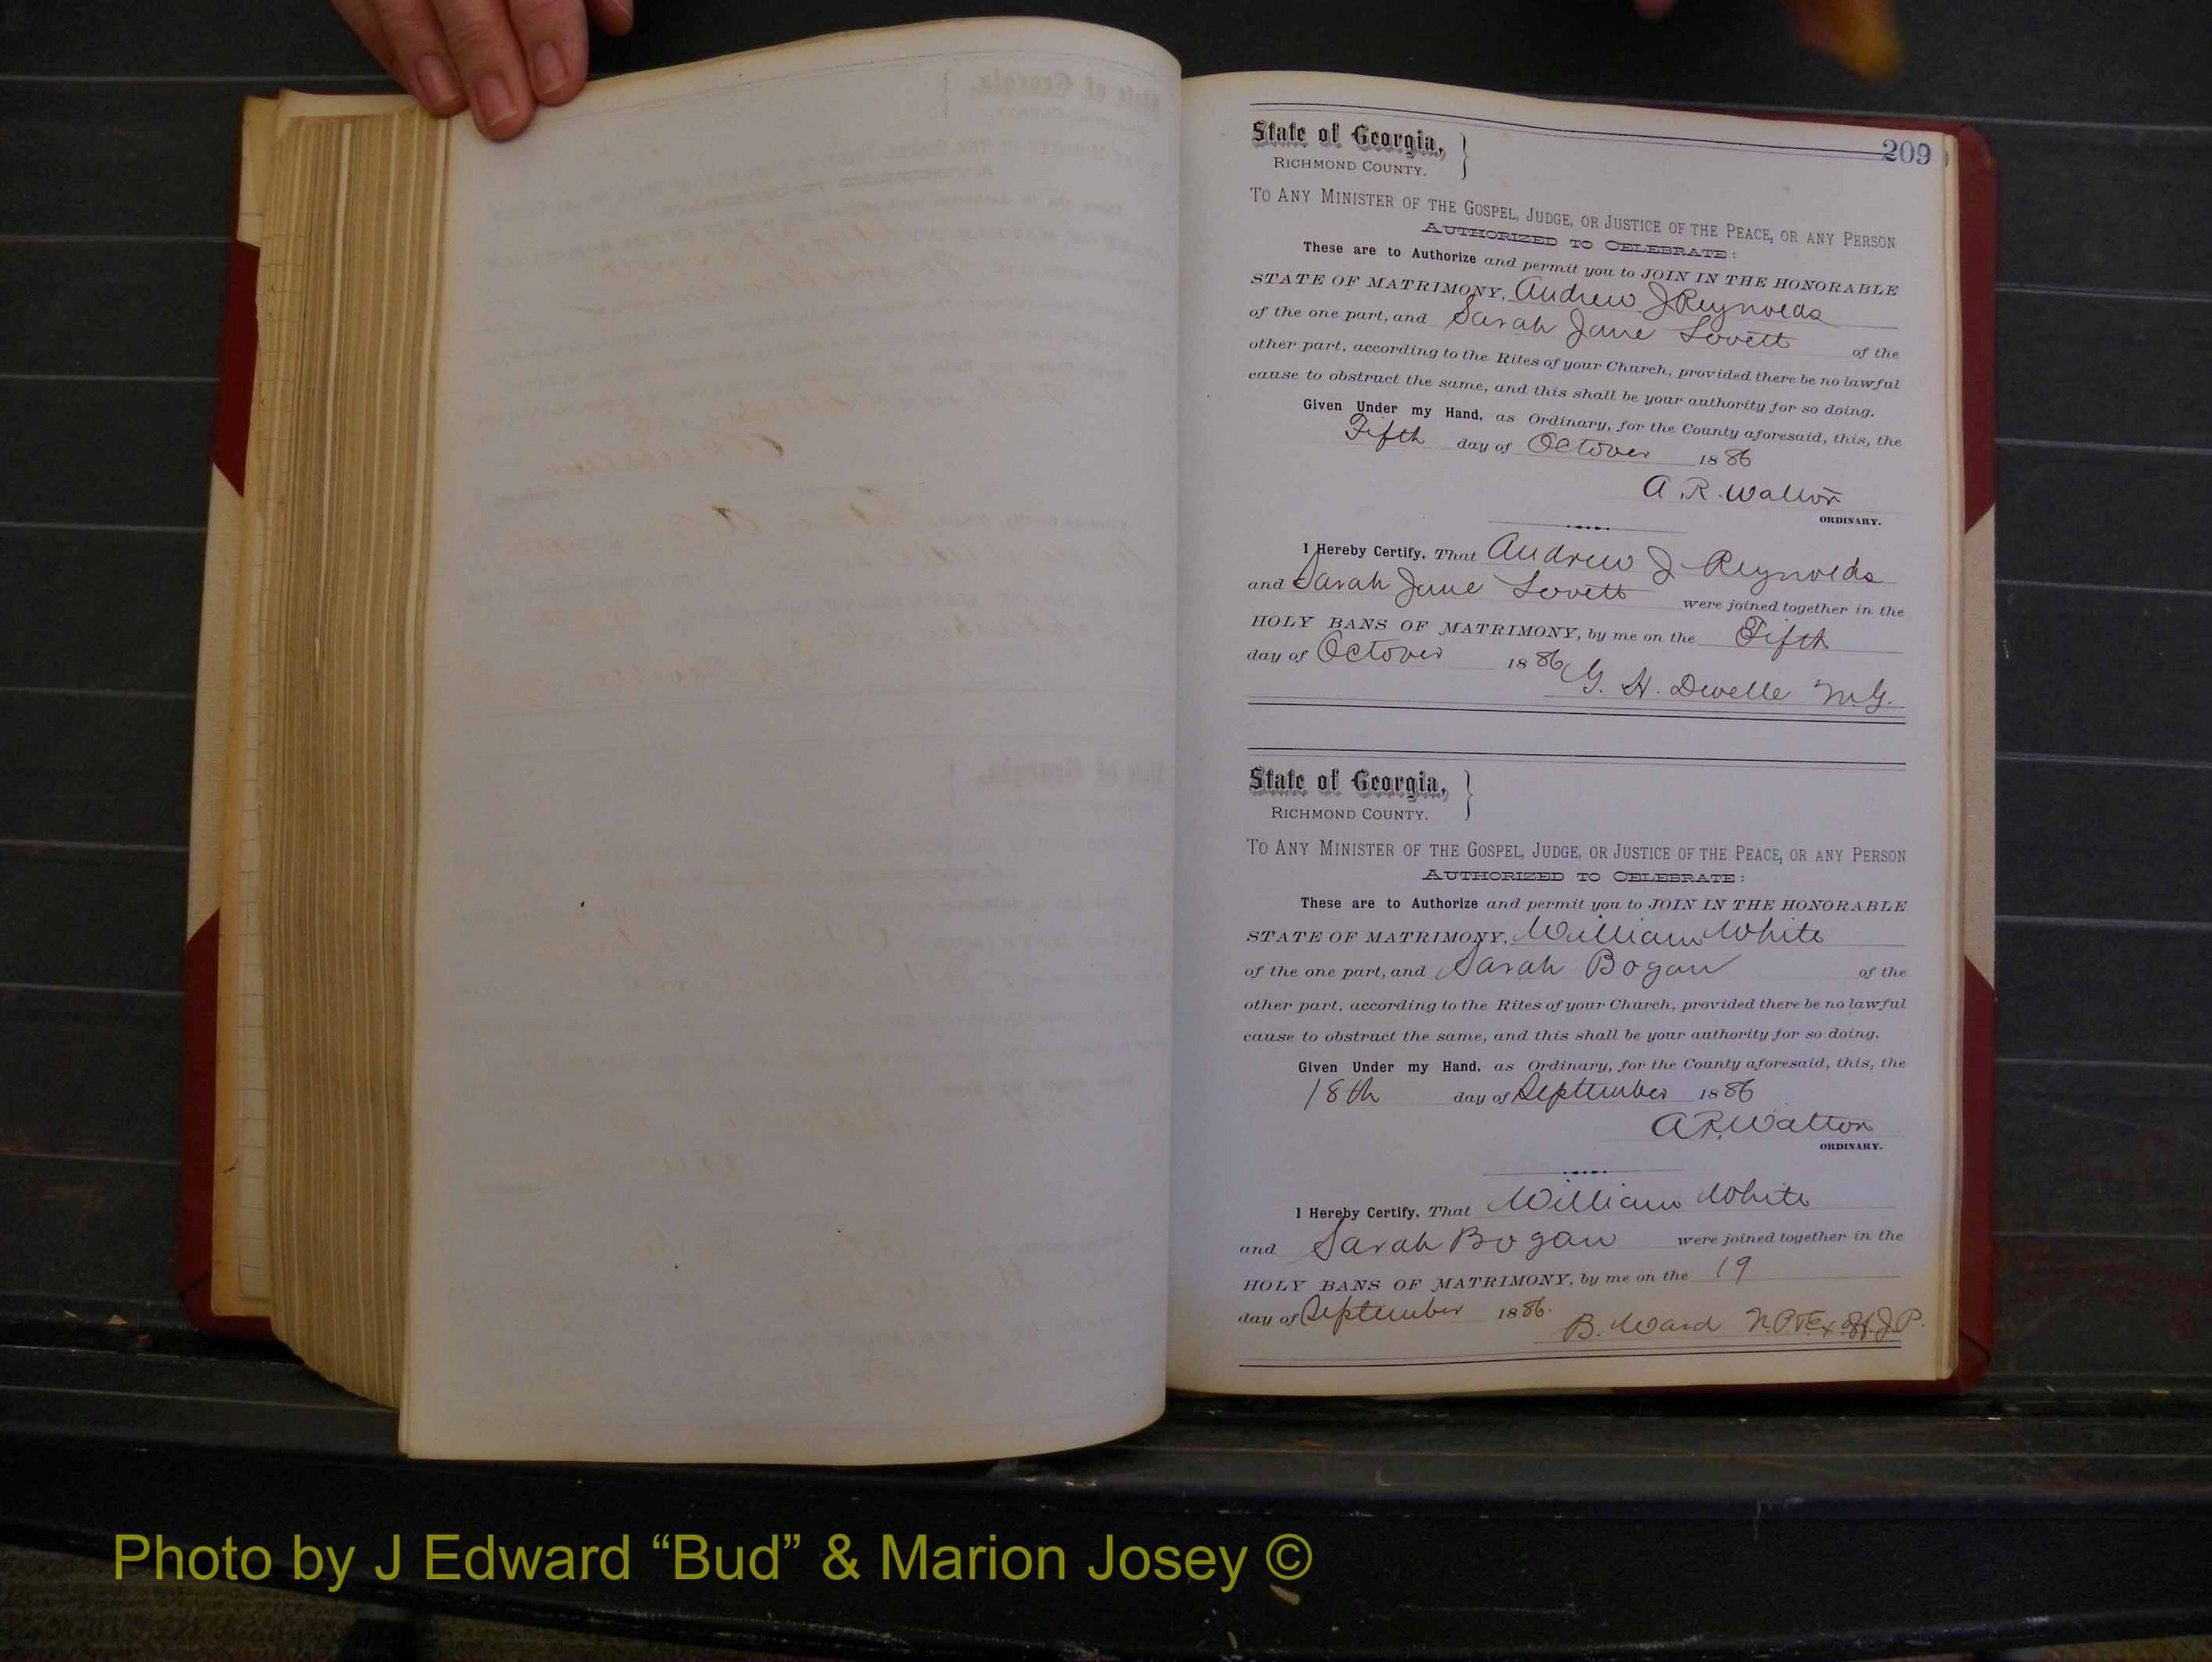 209
State of Georgia,
RICHMOND COUNTY.
TO ANY MINISTER OF THE GOSPEL, JUDGE, OR JUSTICE OF THE PEACE, OR ANY PERSON
AUTHORIZED TO CELEBRATE:
These are to Authorize and permit you to JOIN IN THE HONORABLE
STATE OF MATRIMONY, Andrew J Reynolds
of the one part, and Sarah Jane Lovett of the
other part, according to the Rites of your Church, provided there be no lawful
cause to obstruct the same, and this shall be your authority for so doing.
Given Under my Hand, as Ordinary, for the County aforesaid, this, the
Fifth day of October 1886
A. R. Walton
ORDINARY.
I Hereby Certify, That Andrew J Reynolds
and Sarah Jane Lovett were joined together in the
HOLY BANS OF MATRIMONY, by me on the Fifth
day of October 1886
G. H. Dwelle M.G.
State of Georgia,
RICHMOND COUNTY.
TO ANY MINISTER OF THE GOSPEL, JUDGE, OR JUSTICE OF THE PEACE, OR ANY PERSON
AUTHORIZED TO CELEBRATE:
These are to Authorize and permit you to JOIN IN THE HONORABLE
STATE OF MATRIMONY, William White
of the one part, and Sarah Bogan of the
other part, according to the Rites of your Church, provided there be no lawful
cause to obstruct the same, and this shall be your authority for so doing.
Given Under my Hand, as Ordinary, for the County aforesaid, this, the
18th day of September 1886
A R. Walton
ORDINARY.
I Hereby Certify, That William White
and Sarah Bogan were joined together in the
HOLY BANS OF MATRIMONY, by me on the 19
day of September 1886.
B. Ward N.P. & Ex Off J.P.
Photo by J Edward “Bud” & Marion Josey ©